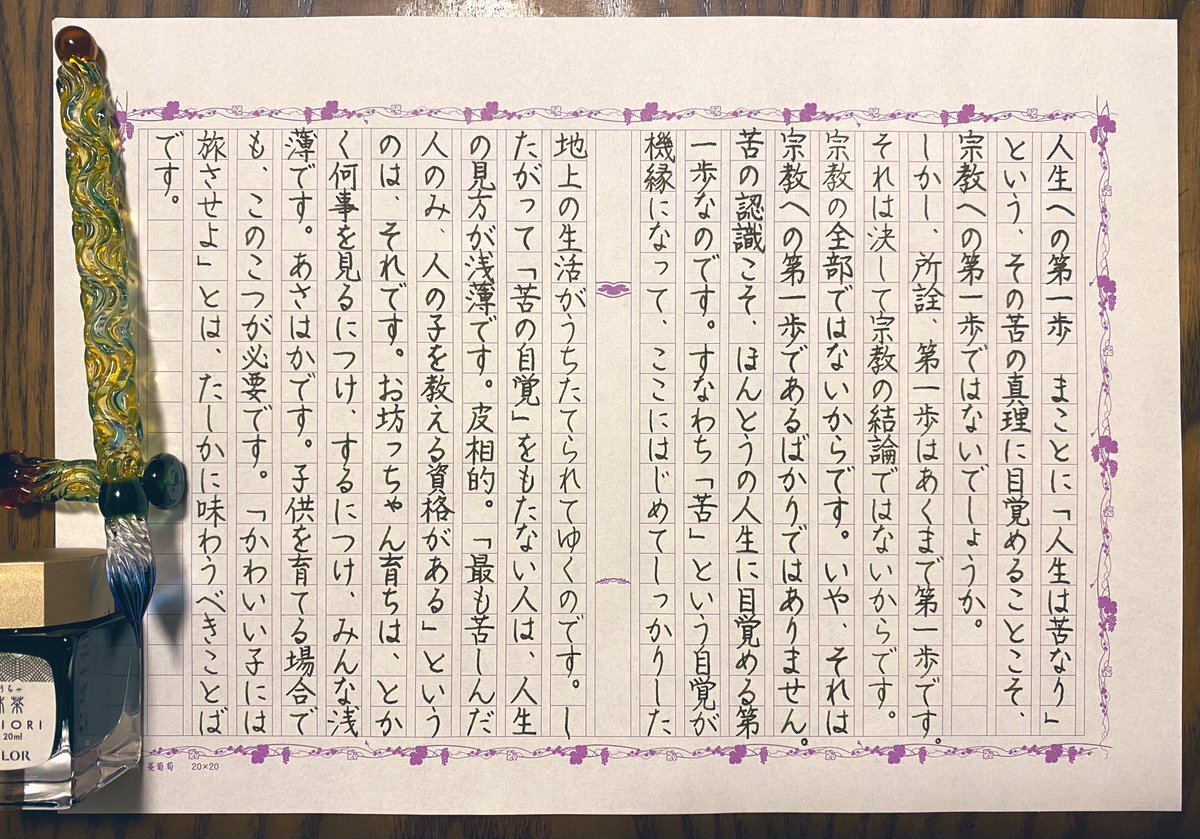 人生への第一歩　まことに「人生は苦なり」
という、その苦の真理に目覚めることこそ、
宗教への第一歩ではないでしょうか。
しかし、所詮、第一歩はあくまで第一歩です。
それは決して宗教の結論ではないからです。
宗教の全部ではないからです。いや、それは
宗教への第一歩であるばかりではありません。
苦の認識こそ、ほんとうの人生に目覚める第
一歩なのです。すなわち「苦」という自覚が
機縁になって、ここにはじめてしっかりした
地上の生活がうちたてられてゆくのです。し
たがって「苦の自覚」をもたない人は、人生
の見方が浅薄です。皮相的。「最も苦しんだ
人のみ、人の子を教える資格がある」という
のは、それです。お坊っちゃん育ちは、とか
く何事を見るにつけ、するにつけ、みんな浅
薄です。あさはかです。子供を育てる場合で
も、このこつが必要です。「かわいい子には
旅させよ」とは、たしかに味わうべきことば
です。
葡萄 20×20
茶
IORI
20ml
LOR